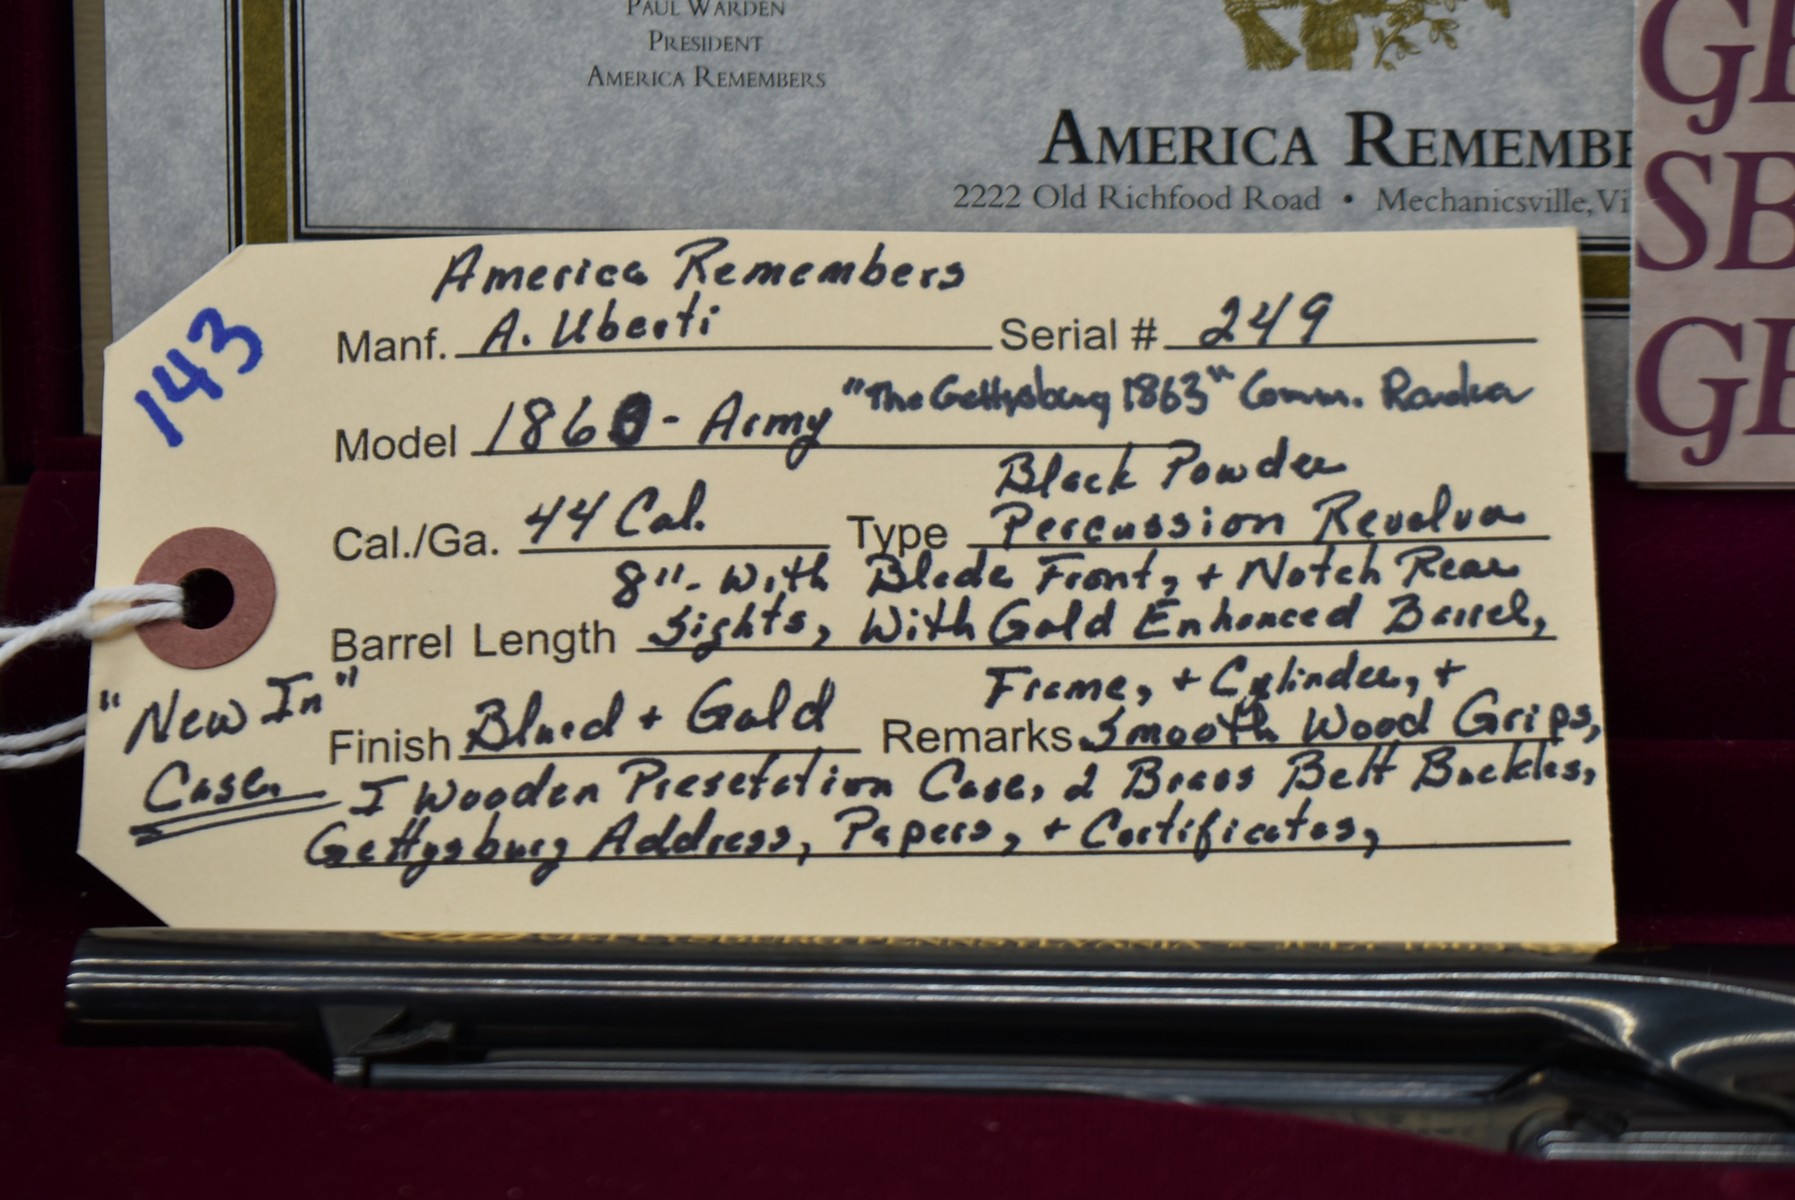 PAUL WARDEN
PRESIDENT
AMERICA REMEMBERS
AMERICA REMEMBE
2222 Old Richfood Road • Mechanicsville, Vi
GE
SB
GE
143
America Remembers
Manf. A. Uberti Serial # 249
Model 1860 - Army "The Gettysburg 1863" Comm.
Black Powder
Cal./Ga. 44 Cal. Type Percussion Revolver
8"- With Blade Front, + Notch Rear
Barrel Length Sights, With Gold Enhanced Barrel,
Frame, + Cylinder, +
Finish Blued + Gold Remarks Smooth Wood Grips,
"New In"
Case,
I Wooden Presetation Case, 2 Brass Belt Buckles,
Gettysburg Address, Papers, + Certificates,
GETTYSBURG, PENNSYLVANIA JULY 1863